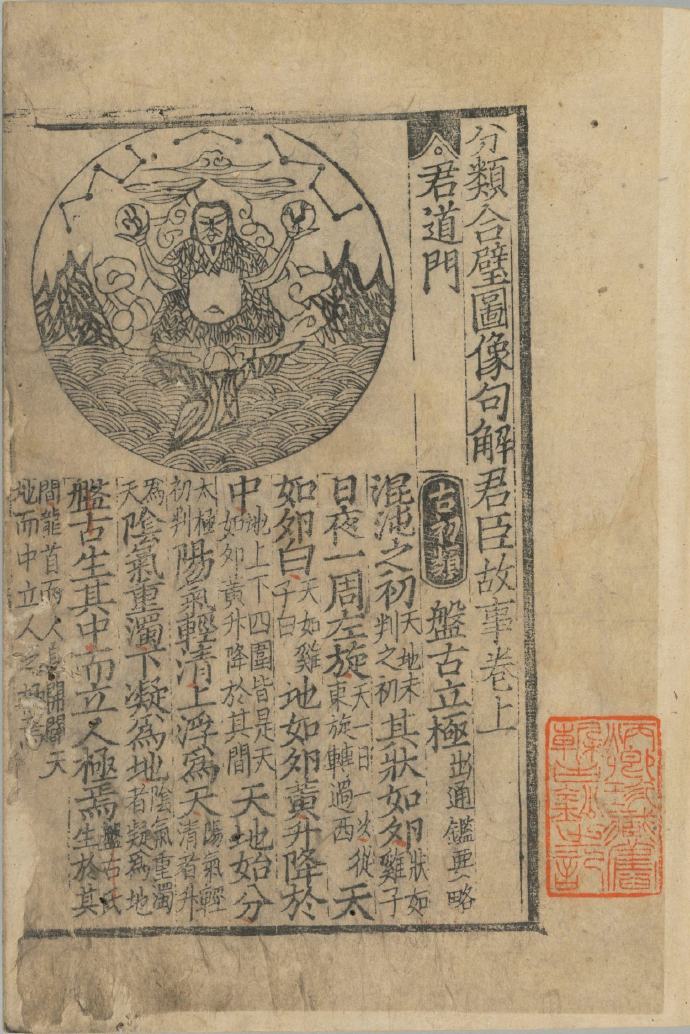 分類合璧圖像句解君臣故事卷上
君道門
古初類 盤古立極 出通鑑要略
混沌之初 天地未判之初 其狀如夘 狀如雞子 天
日夜一周左旋 天一日一次從東旋轉過西 天
如夘白 天如雞子白 地如夘黃升降於
中 地上下四圍皆是天如夘黃升降於其間 天地始分
太極初判 陽氣輕清上浮為天 陽氣輕清者升
為天 陰氣重濁下凝為地 陰氣重濁者凝為地
盤古生其中而立人極焉 盤古氏生於其
間龍首而人身開闢天
地而中立人之極焉